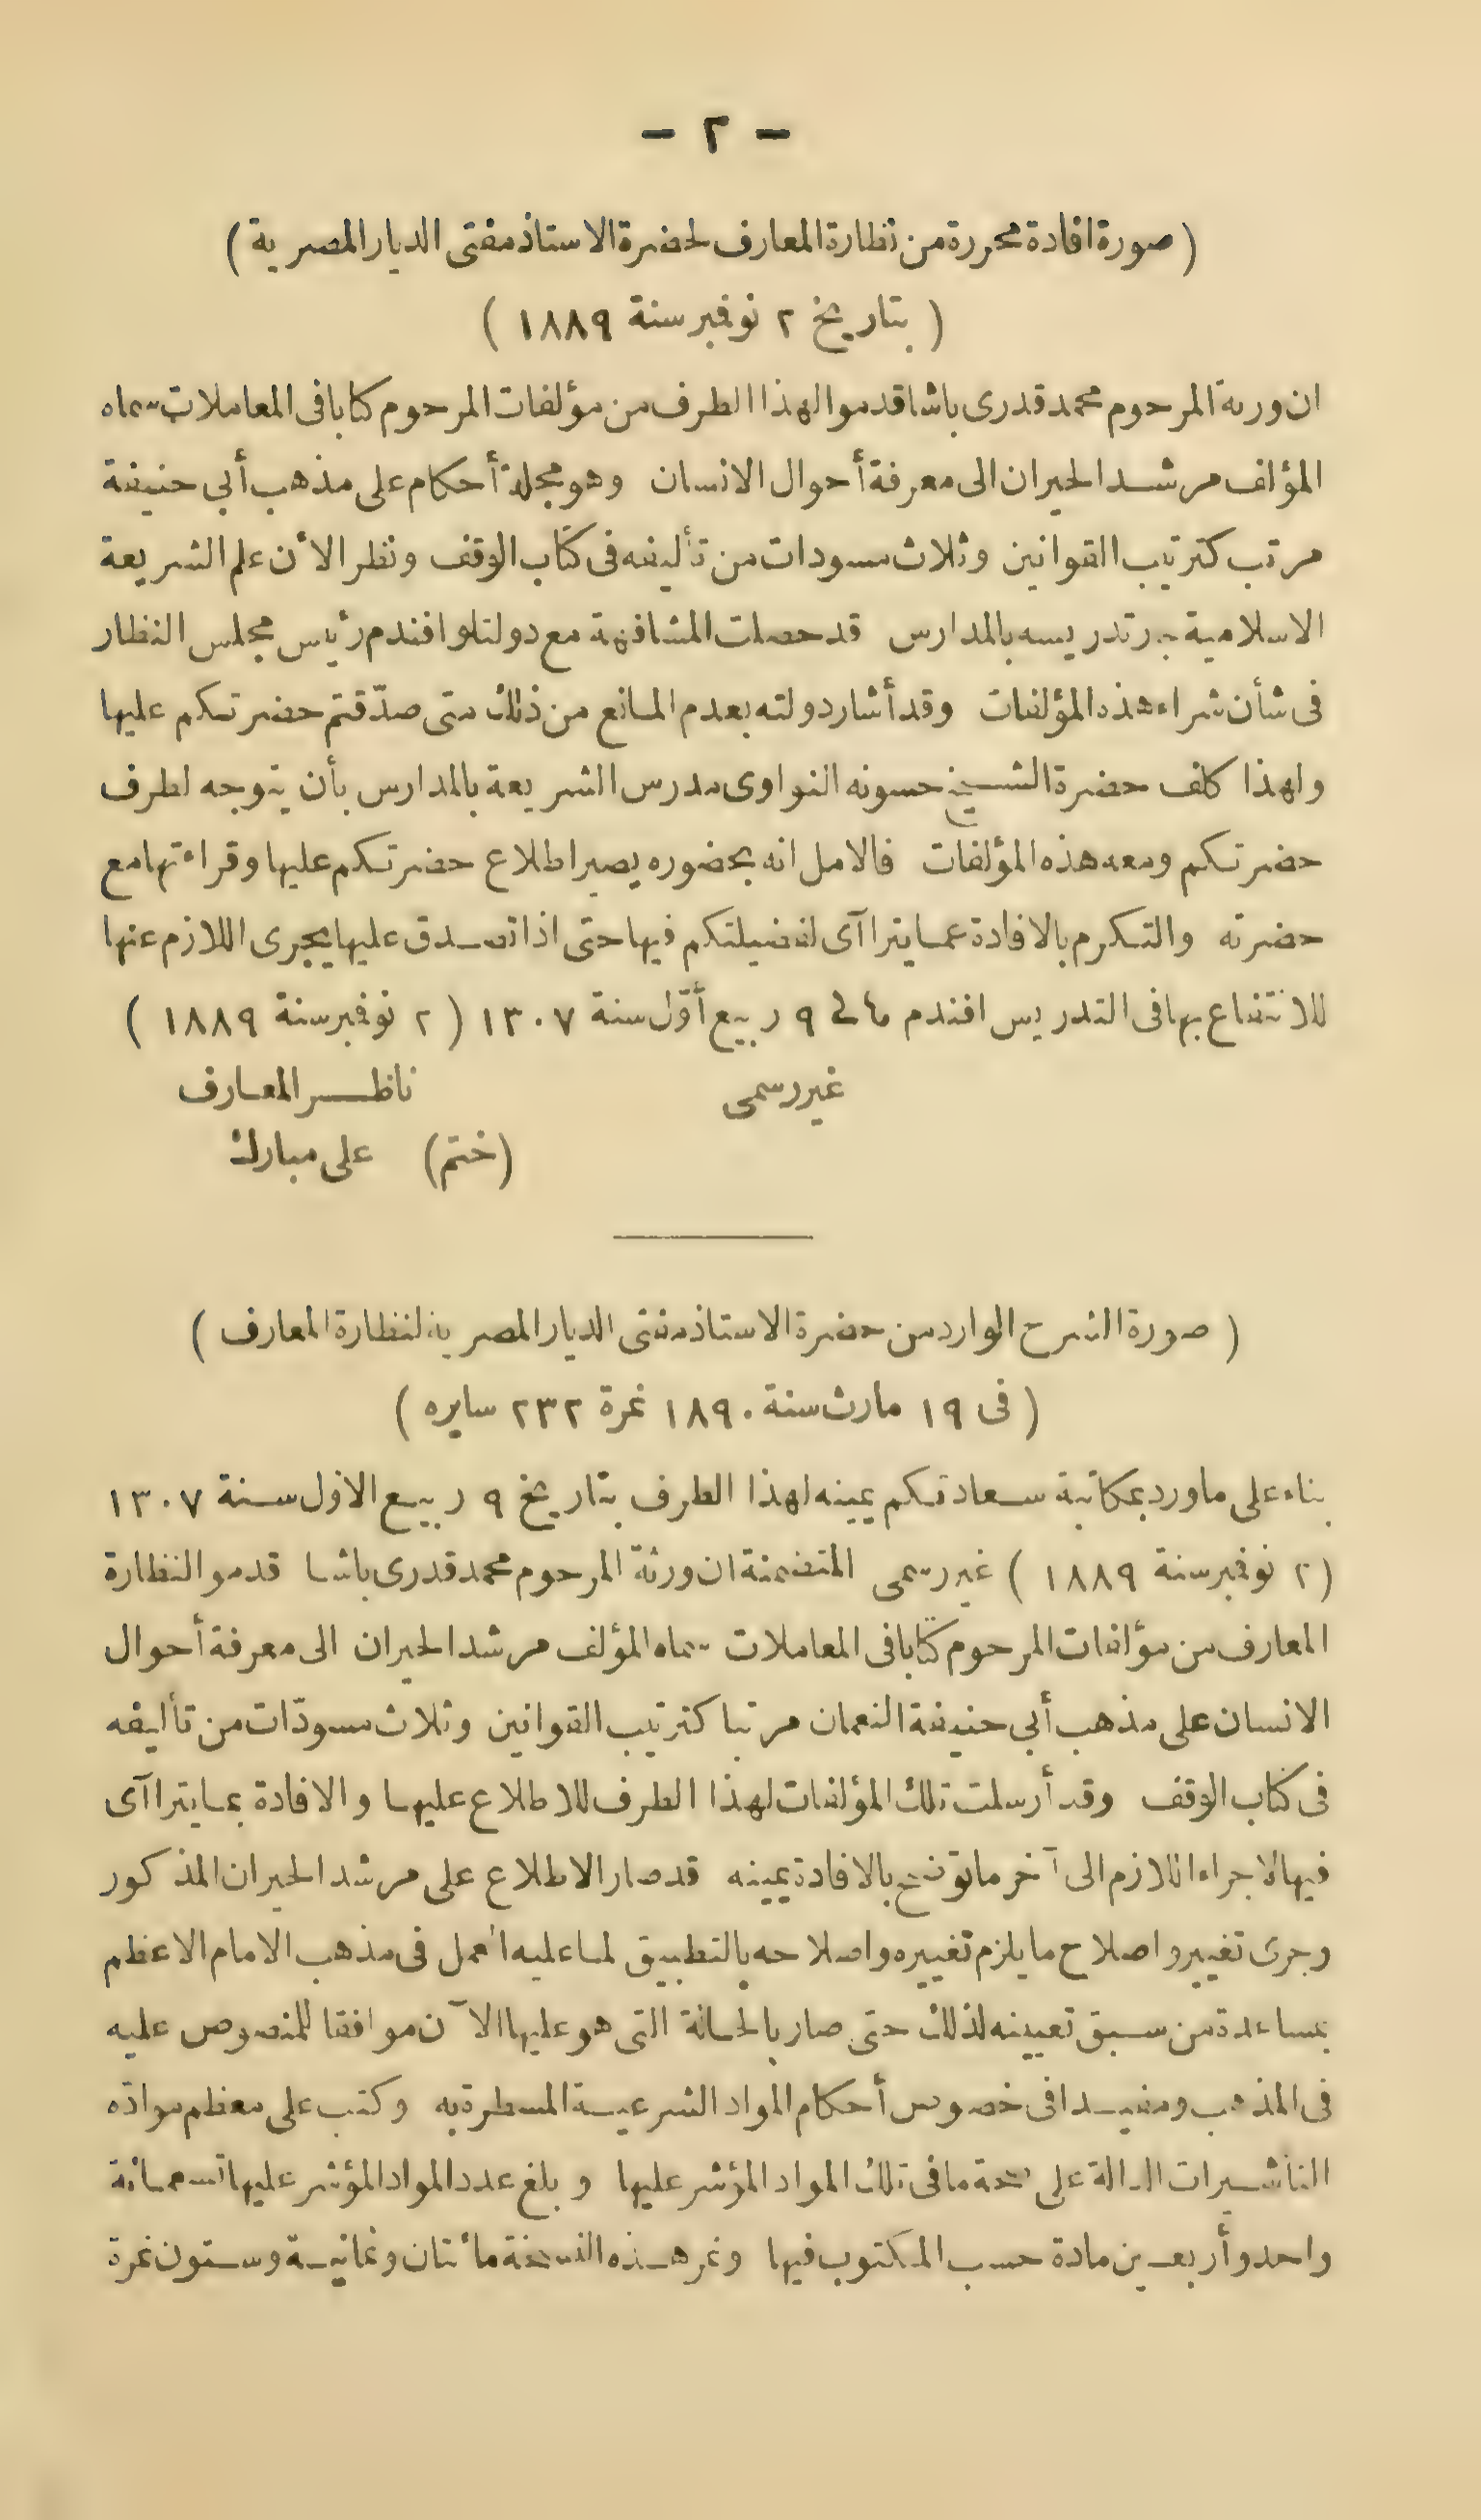 - ٢ -
( صورة افادة محررة من نظارة المعارف لحضرة الاستاذ مفتى الديار المصرية )
( بتاريخ ٢ نوفمبر سنة ١٨٨٩ )
ان ورثة المرحوم محمد قدرى باشا قدموا لهذا الطرف من مؤلفات المرحوم كتابا فى المعاملات سماه
المؤلف مرشد الحيران الى معرفة أحوال الانسان وهو مجلة أحكام على مذهب أبى حنيفة
مرتب كترتيب القوانين وثلاث مسودات من تأليفه فى كتاب الوقف ونظر الأن علم الشريعة
الاسلامية جار تدريسه بالمدارس قد حصلت المشافهة مع دولتلو افندم رئيس مجلس النظار
فى شأن شراء هذه المؤلفات وقد أشار دولته بعدم المانع من ذلك متى صدّقتم حضرتكم عليها
ولهذا كلف حضرة الشيخ حسونه النواوى مدرس الشريعة بالمدارس بأن يتوجه لطرف
حضرتكم ومعه هذه المؤلفات فالامل انه بحضوره يصير اطلاع حضرتكم عليها وقراءتها مع
حضرته والتكرم بالافادة عما يتراآى لفضيلتكم فيها حتى اذا تصدق عليها يجرى اللازم عنها
للانتفاع بها فى التدريس افندم ٩ ربيع أوّل سنة ١٣٠٧ ( ٢ نوفمبر سنة ١٨٨٩ )
غير رسمى ناظر المعارف
(ختم) على مبارك
( صورة الشرح الوارد من حضرة الاستاذ مفتى الديار المصرية لنظارة المعارف )
( فى ١٩ مارث سنة ١٨٩٠ نمرة ٢٣٢ سايره )
بناء على ما ورد بمكاتبة سعادتكم يمينه لهذا الطرف بتاريخ ٩ ربيع الاول سنة ١٣٠٧
( ٢ نوفمبر سنة ١٨٨٩ ) غير رسمى المتضمنة ان ورثة المرحوم محمد قدرى باشا قدموا لنظارة
المعارف من مؤلفات المرحوم كتابا فى المعاملات سماه المؤلف مرشد الحيران الى معرفة أحوال
الانسان على مذهب أبى حنيفة النعمان مرتبا كترتيب القوانين وثلاث مسودّات من تأليفه
فى كتاب الوقف وقد أرسلت تلك المؤلفات لهذا الطرف للاطلاع عليها والافادة بما يتراآى
فيها لاجراء اللازم الى آخر ما توضح بالافادة يمينه قد صار الاطلاع على مرشد الحيران المذكور
وجرى تغيير واصلاح ما يلزم تغييره واصلاحه بالتطبيق لما عليه العمل فى مذهب الامام الاعظم
بمساعدة من سبق تعيينه لذلك حتى صار بالحالة التى هو عليها الآن موافقا للمنصوص عليه
فى المذهب ومفيدا فى خصوص أحكام المواد الشرعية المسطرة به وكتب على معظم موادّه
التأشيرات الدالة على صحة ما فى تلك المواد المؤشر عليها وبلغ عدد المواد المؤشر عليها تسعمائة
واحد وأربعين مادة حسب المكتوب فيها ونمر هذه النسخة مائتان وثمانية وستون نمرة